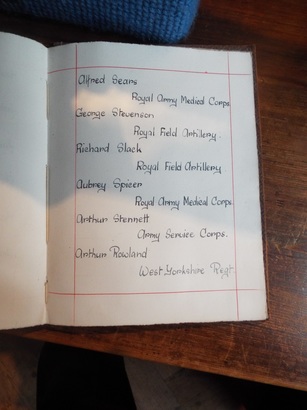 Alfred Sears
Royal Army Medical Corps.
George Stevenson
Royal Field Artillery.
Richard Slack
Royal Field Artillery
Aubrey Spicer
Royal Army Medical Corps.
Arthur Stennett
Army Service Corps.
Arthur Rowland
West Yorkshire Regt.